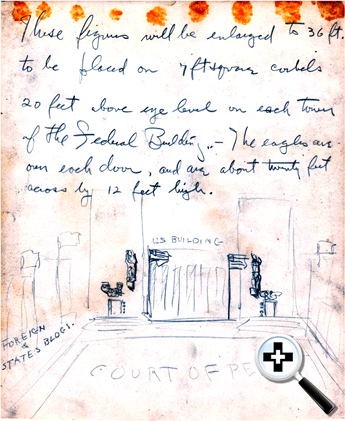 These figures will be enlarged to 36 ft.
to be placed on 7ft square corbels
20 feet above eye level on each tower
of the Federal Building.. — The eagles are
over each door, and are about twenty feet
across by 12 feet high.
U.S BUILDING
FOREIGN
&
STATES BLDGS.
COURT OF PE